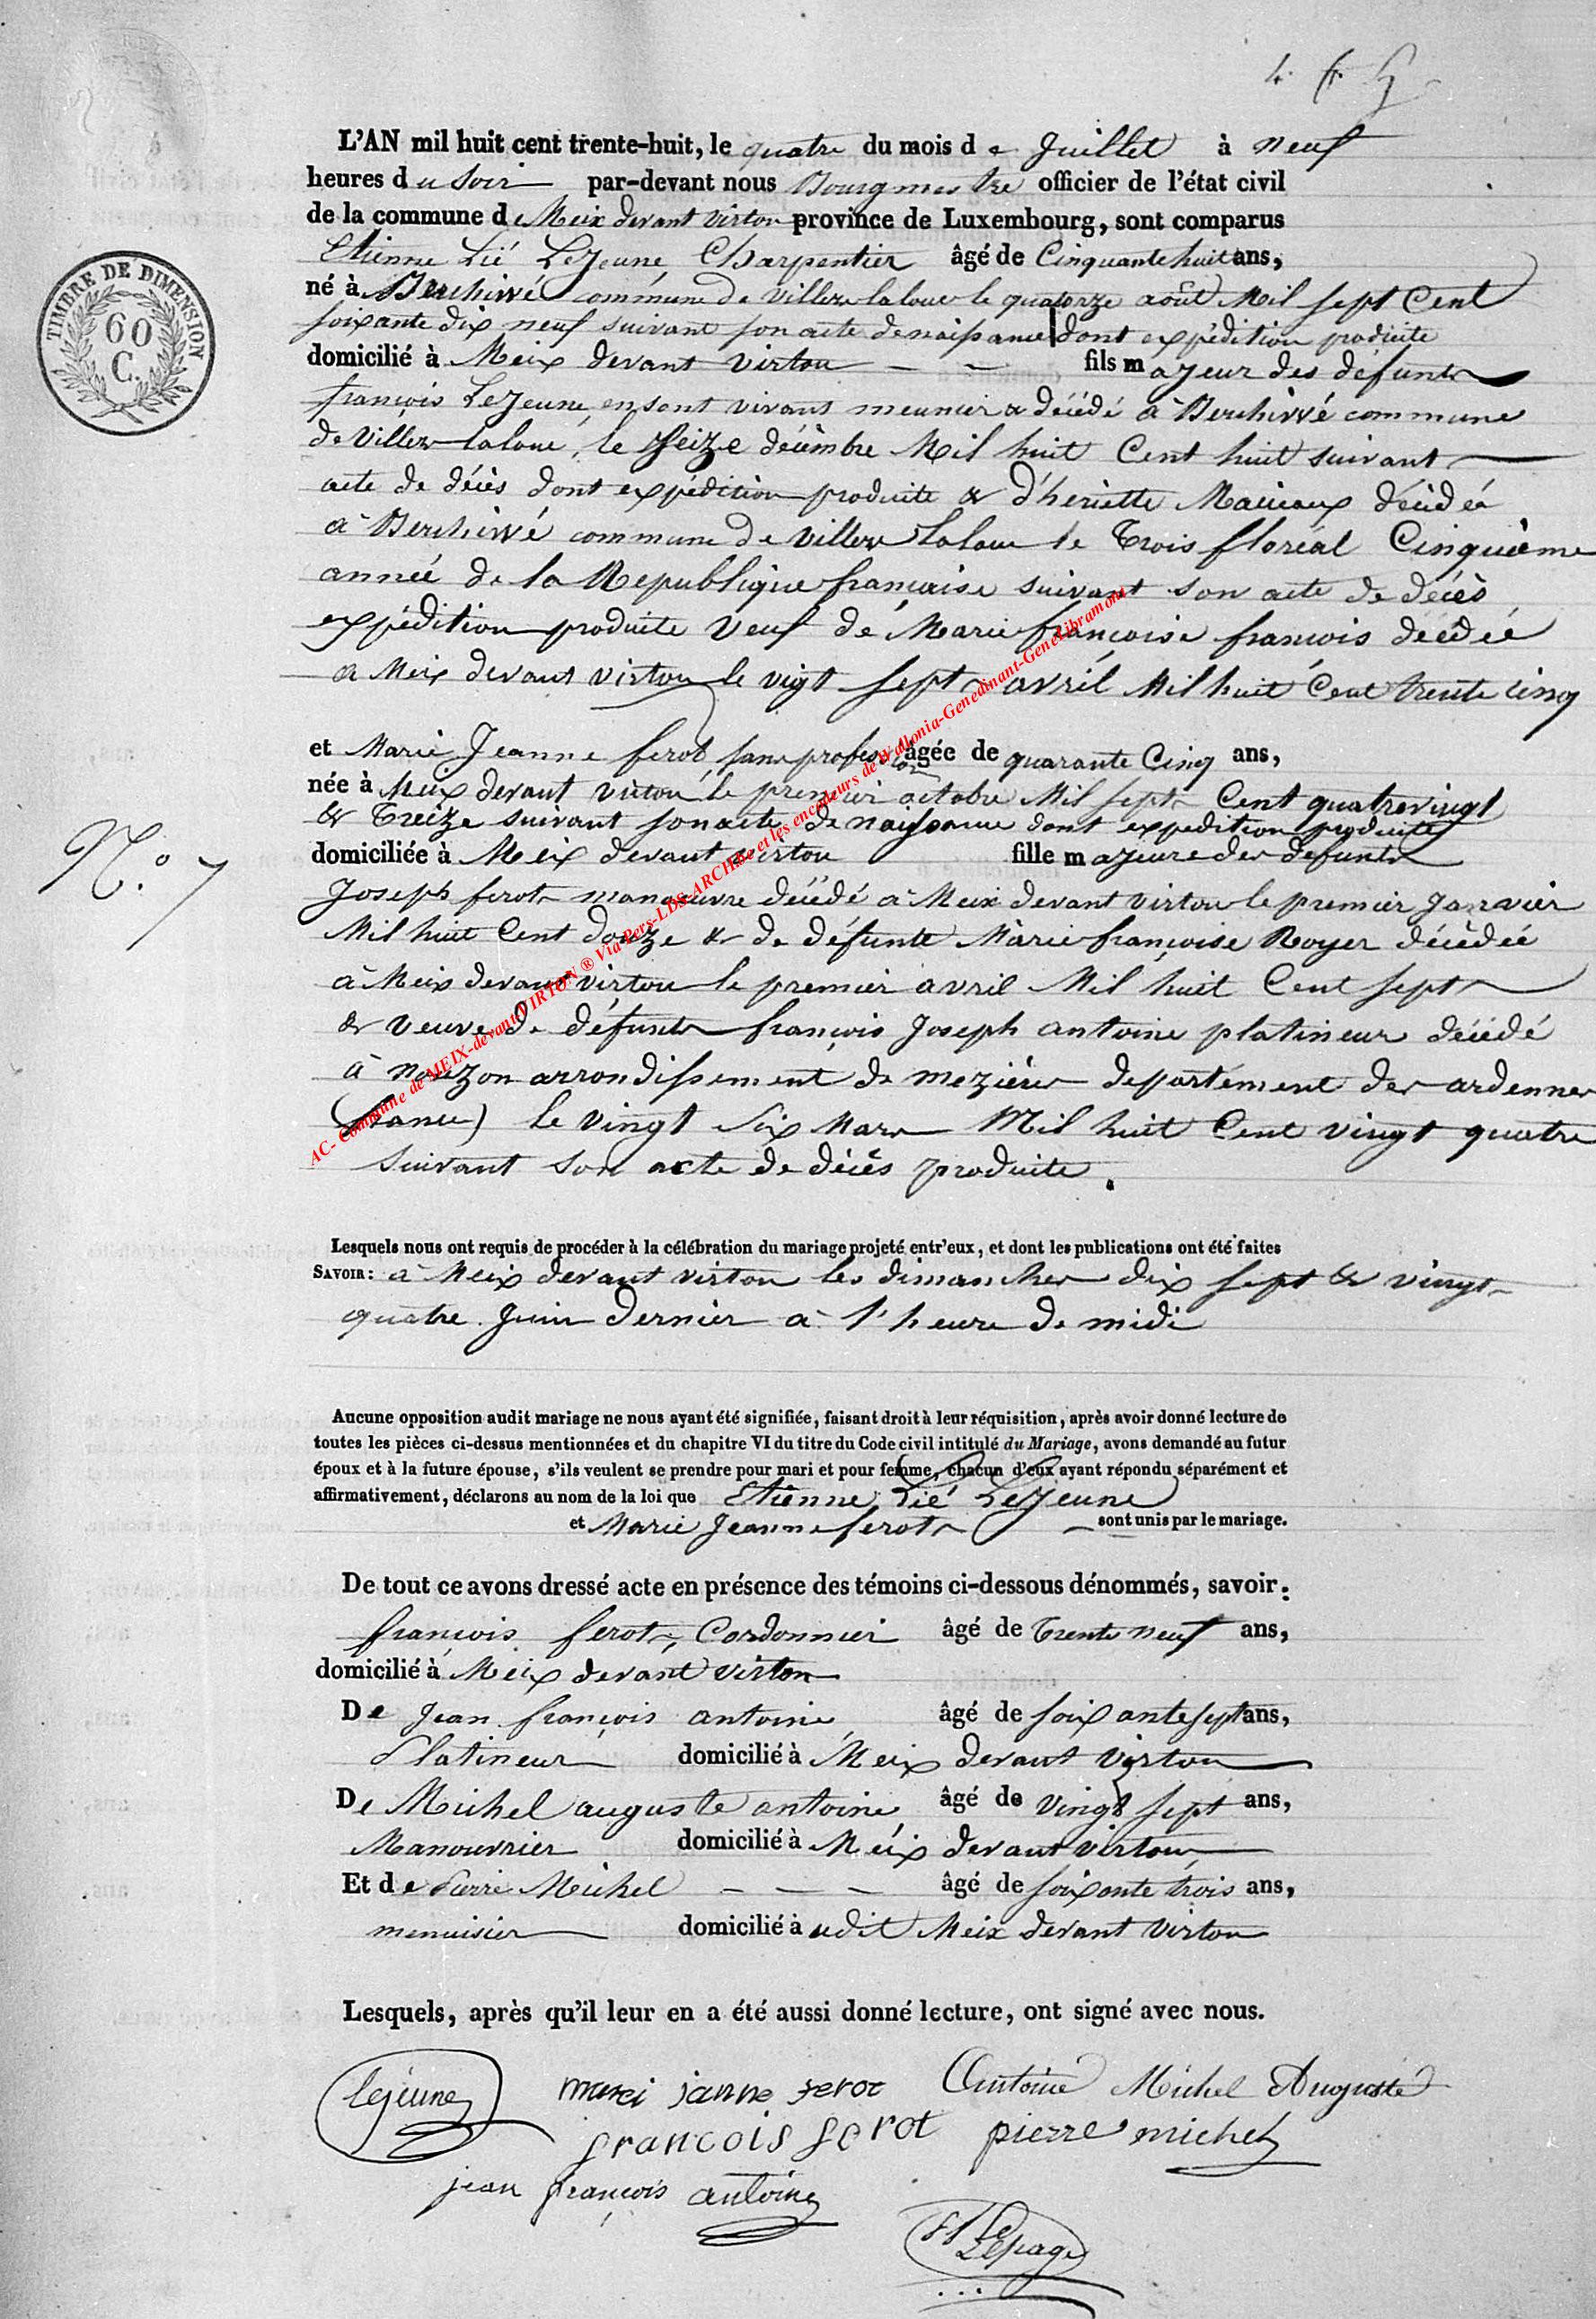 L'AN mil huit cent trente-huit, le quatre du mois de Juillet à neuf
heures du Soir par-devant nous Bourgmestre officier de l'état civil
de la commune de Meix devant Virton province de Luxembourg, sont comparus
Etienne Lié LeJeune, Charpentier âgé de Cinquante huit ans,
né à Berchiwé commune de Villers laloue le quatorze août Mil sept Cent
soixante dix neuf suivant son acte de naissance dont expédition produite
domicilié à Meix devant Virton fils majeur des défunts
françois LeJeune, en sont vivant meunier & décédé à Berchiwé commune
de Villers laloue, le seize décembre Mil huit Cent huit suivant
acte de décès dont expédition produite & d'heriette décédée
à Berchiwé commune de Villers laloue le Trois floréal Cinquième
année de la Republique française suivant son acte de décès
expédition produite Veuf de Marie françoise françois décédée
a Meix devant virton le vigt sept avril Mil huit Cent trente cinq
et Marie Jeanne ferot sans profession âgée de quarante Cinq ans,
née à Meix devant Virton le premier octobre Mil sept Cent quatrevingt
& Treize suivant son acte de naissance dont expedition produite
domiciliée à Meix devant virton fille majeure des defunts
N.° 7
Joseph ferot manoeuvre décédé à Meix devant virton le premier Janvier
Mil huit Cent douze & de défunte Marie françoise Royer décédée
à Meix devant virton le premier avril Mil huit Cent sept
& veuve de défunts françois Joseph antoine platineur décédé
à nouzon arrondissement de mezières departement des ardennes
(france) le vingt Six Mars Mil huit Cent vingt quatre
suivant son acte de décès produite.
Lesquels nous ont requis de procéder à la célébration du mariage projeté entr'eux, et dont les publications ont été faites
SAVOIR: à Meix devant virton les dimanches dix sept & vingt
quatre Juin dernier à l'heure de midi
Aucune opposition audit mariage ne nous ayant été signifiée, faisant droit à leur réquisition, après avoir donné lecture de
toutes les pièces ci-dessus mentionnées et du chapitre VI du titre du Code civil intitulé du Mariage, avons demandé au futur
époux et à la future épouse, s'ils veulent se prendre pour mari et pour femme, chacun d'eux ayant répondu séparément et
affirmativement, déclarons au nom de la loi que Etienne Lié LeJeune
et Marie Jeanne ferot sont unis par le mariage.
De tout ce avons dressé acte en présence des témoins ci-dessous dénommés, savoir.
françois ferot, Cordonnier âgé de Trente neuf ans,
domicilié à Meix devant virton
De Jean françois antoine âgé de soixante sept ans,
Platineur domicilié à Meix devant Virton
De Michel auguste antoine âgé de vingt sept ans,
Manouvrier domicilié à Meix devant virton
Et de Pierre Michel âgé de soixante trois ans,
menuisier domicilié à udit Meix devant Virton
Lesquels, après qu'il leur en a été aussi donné lecture, ont signé avec nous.
lejeune marei janne ferot Antoine Michel Auguste
francois ferot pierre michel
jean françois antoine
Lepage
TIMBRE DE DIMENSION
60
C.
AC- Commune de MEIX-devant VIRTON ® Via Pers-LDS-ARCHive et les encodeurs de Wallonia-Genedinant-GeneLibramont